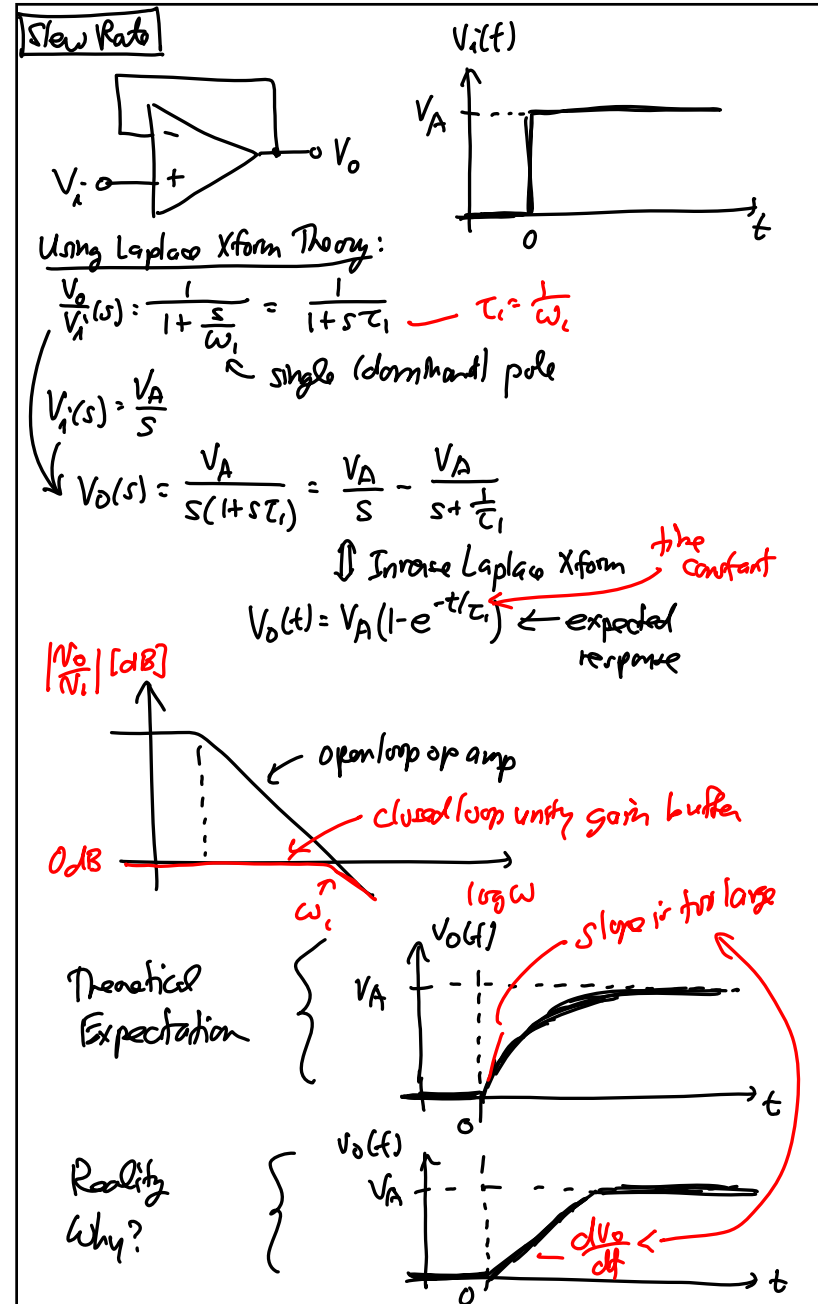 Slew Rate
Vi(t)
VA
- + Vi Vo
0 t
Using Laplace Xform Theory:
Vo/Vi(s) = 1/(1 + s/ω1) = 1/(1 + sτ1) τ1 = 1/ω1
single (dominant) pole
Vi(s) = VA/s
Vo(s) = VA/(s(1+sτ1)) = VA/s - VA/(s + 1/τ1)
⇕ Inverse Laplace Xform
time constant
Vo(t) = VA(1-e^(-t/τ1)) ← expected response
|Vo/Vi| [dB]
open loop op amp
closed loop unity gain buffer
0dB
ω1 log ω
slope is too large
Vo(t)
Theoretical Expectation
VA
0 t
Vo(t)
Reality
VA
Why?
dVo/dt
0 t